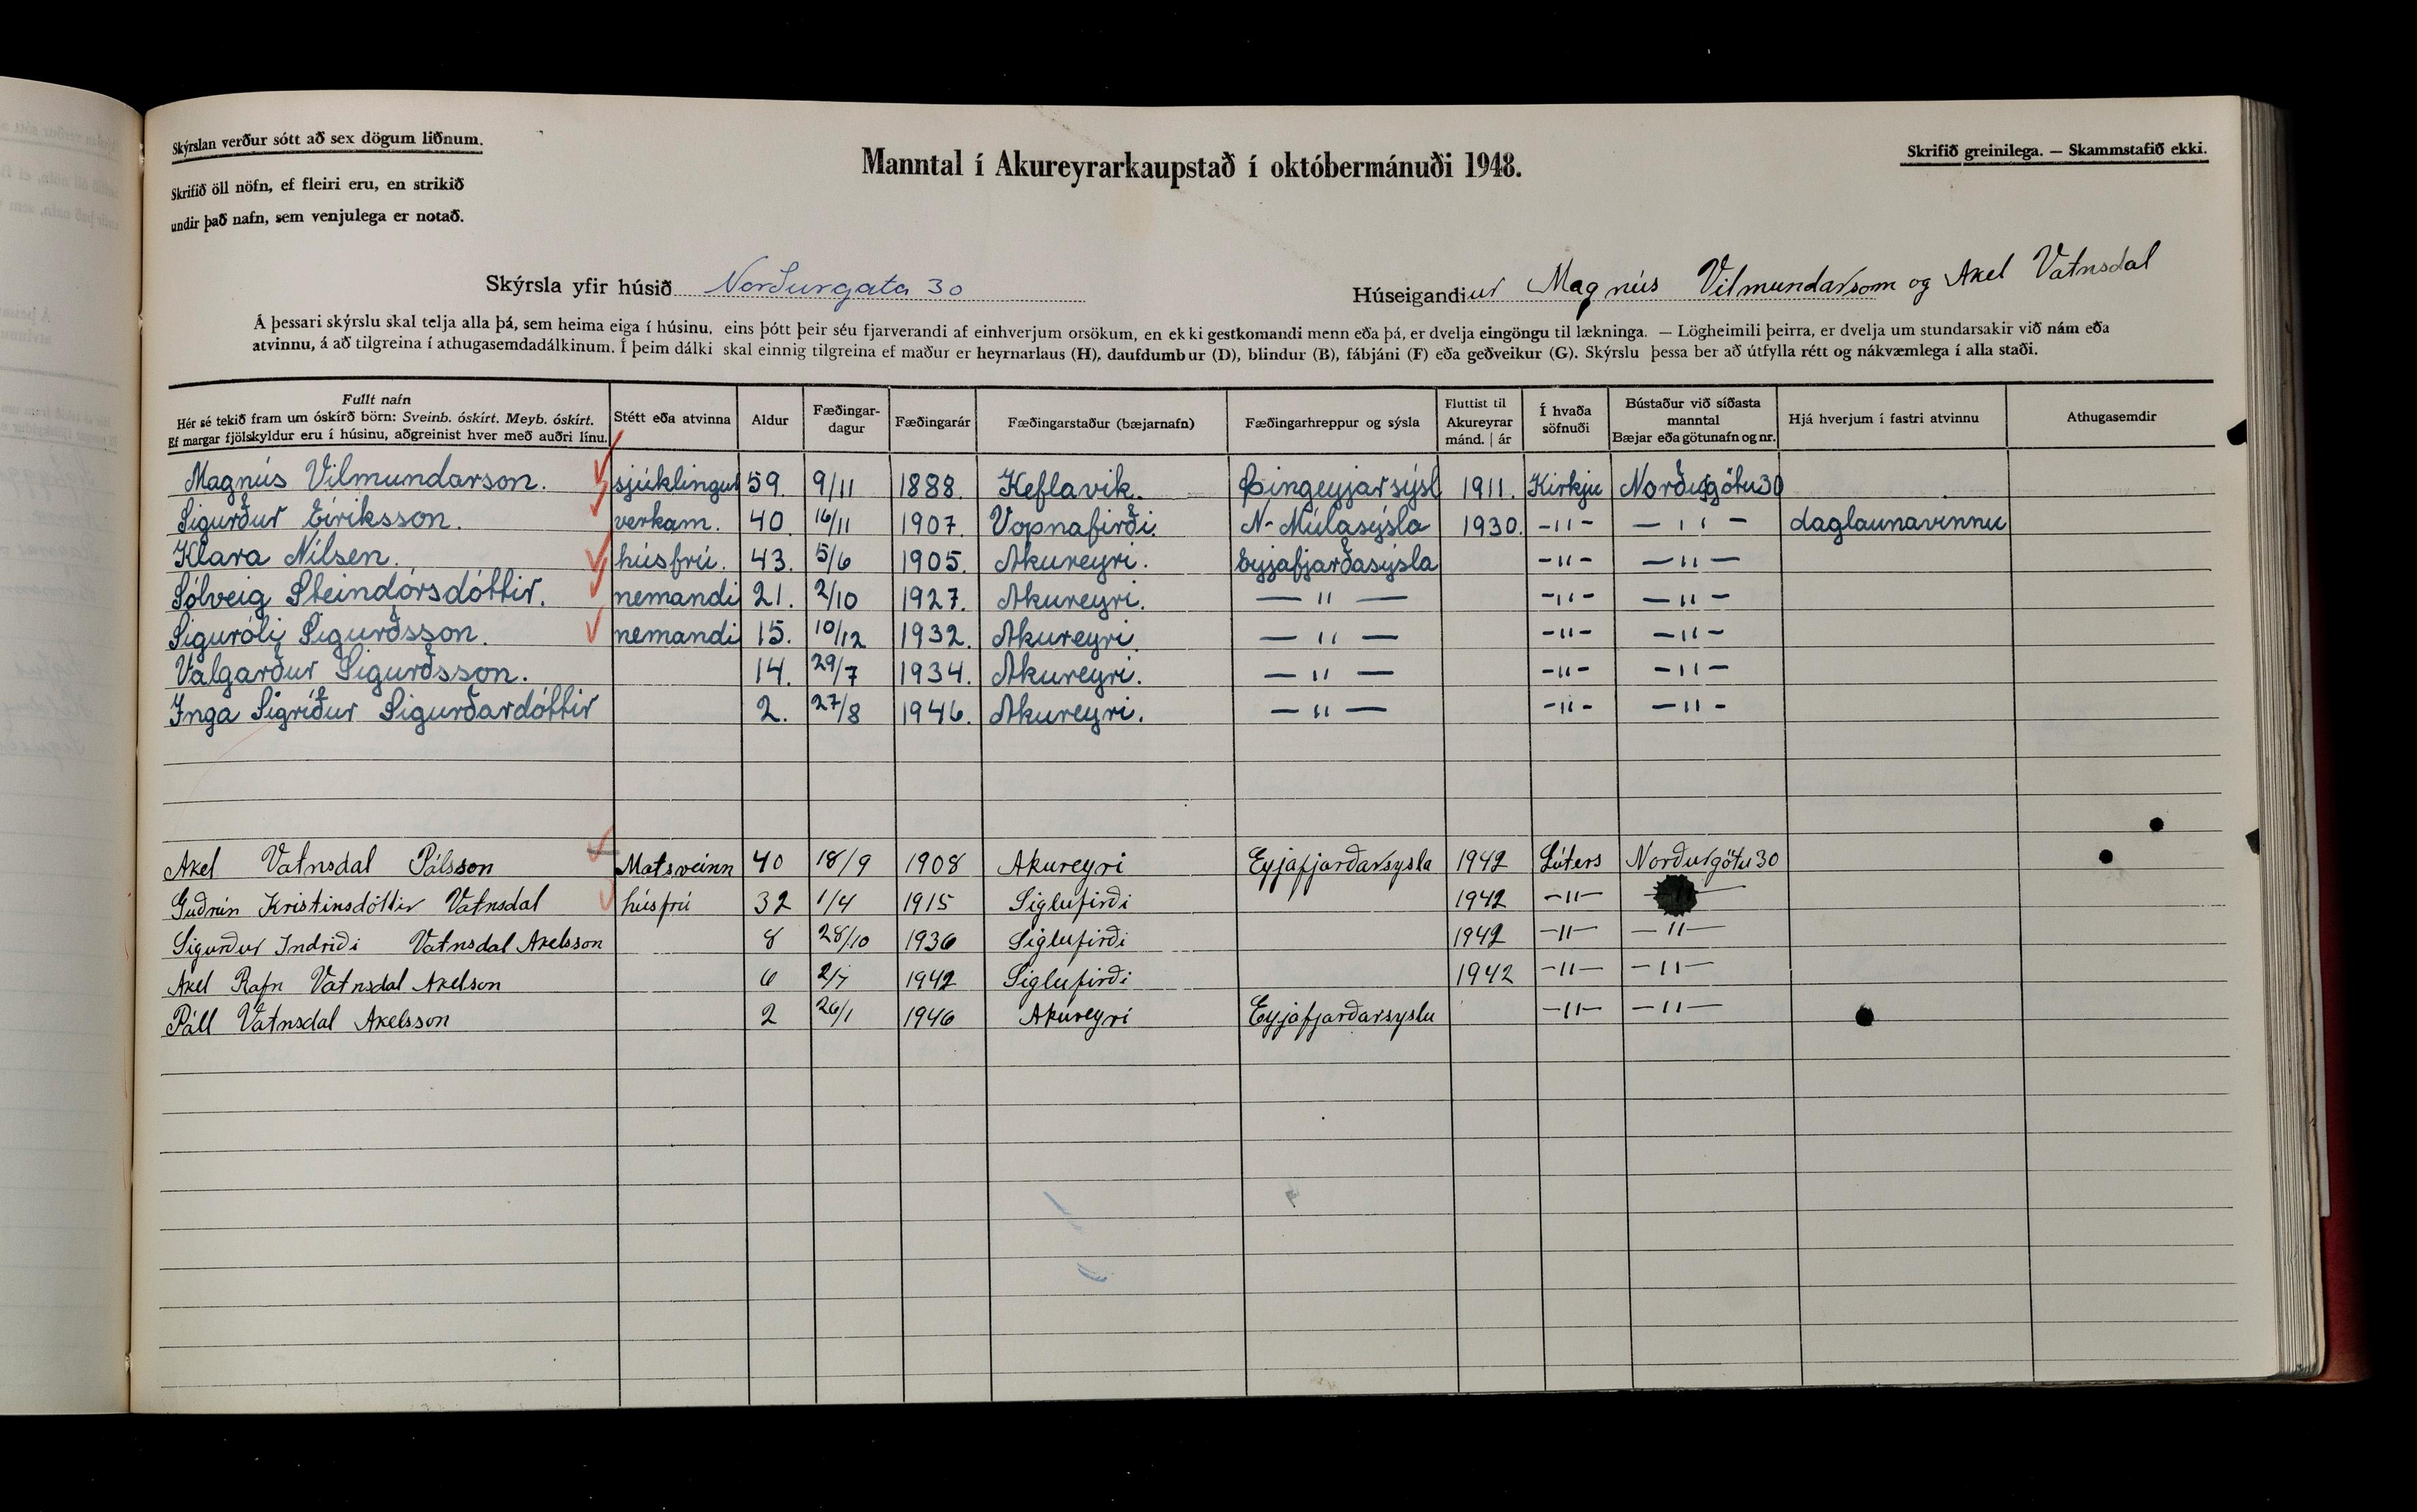 Skýrslan verður sótt að sex dögum liðnum.
Skrifið öll nöfn, ef fleiri eru, en strikið
undir það nafn, sem venjulega er notað.
Manntal í Akureyrarkaupstað í októbermánuði 1948.
Skrifið greinilega. — Skammstafið ekki.
Skýrsla yfir húsið Norðurgata 30
Húseigandiur Magnús Vilmundarson og Axel Vatnsdal
Á þessari skýrslu skal telja alla þá, sem heima eiga í húsinu, eins þótt þeir séu fjarverandi af einhverjum orsökum, en ekki gestkomandi menn eða þá, er dvelja eingöngu til lækninga. — Lögheimili þeirra, er dvelja um stundarsakir við nám eða
atvinnu, á að tilgreina í athugasemdadálkinum. Í þeim dálki skal einnig tilgreina ef maður er heyrnarlaus (H), daufdumbur (D), blindur (B), fábjáni (F) eða geðveikur (G). Skýrslu þessa ber að útfylla rétt og nákvæmlega í alla staði.
Fullt nafn
Hér sé tekið fram um óskírð börn: Sveinb. óskírt. Meyb. óskírt.
Ef margar fjölskyldur eru í húsinu, aðgreinist hver með auðri línu.
Stétt eða atvinna
Aldur
Fæðingar-
dagur
Fæðingarár
Fæðingarstaður (bæjarnafn)
Fæðingarhreppur og sýsla
Fluttist til
Akureyrar
mánd. | ár
Í hvaða
söfnuði
Bústaður við síðasta
manntal
Bæjar eða götunafn og nr.
Hjá hverjum í fastri atvinnu
Athugasemdir
Magnús Vilmundarson. sjúklingur 59. 9/11 1888. Keflavik. Þingeyjarsýsl 1911. Kirkju Norðurgötu 30
Sigurður Eiríksson. verkam. 40. 16/11 1907. Vopnafirði. N-Múlasýsla 1930. -"- -"- daglaunavinnu
Klara Nílsen. húsfrú. 43. 5/6 1905. Akureyri. Eyjafjarðasýsla -"- -"-
Sólveig Steindórsdóttir. nemandi 21. 2/10 1927. Akureyri. -"- -"- -"-
Sigurólj Sigurðsson. nemandi 15. 10/12 1932. Akureyri -"- -"- -"-
Valgarður Sigurðsson. 14. 29/7 1934. Akureyri. -"- -"- -"-
Inga Sigríður Sigurðardóttir 2. 27/8 1946. Akureyri. -"- -"- -"-
Axel Vatnsdal Pálsson Matsveinn 40 18/9 1908 Akureyri Eyjafjarðarsysla 1942 Lúters Norðurgötu 30
Guðrún Kristinsdóttir Vatnsdal húsfrú 32 1/4 1915 Siglufirði 1942 -"-
Sigurður Indriði Vatnsdal Axelsson 8 28/10 1936 Siglufirði 1942 -"- -"-
Axel Rafn Vatnsdal Axelson 6 2/7 1942 Siglufirði 1942 -"- -"-
Páll Vatnsdal Axelsson 2 26/1 1946 Akureyri Eyjafjarðarsyslu -"- -"-